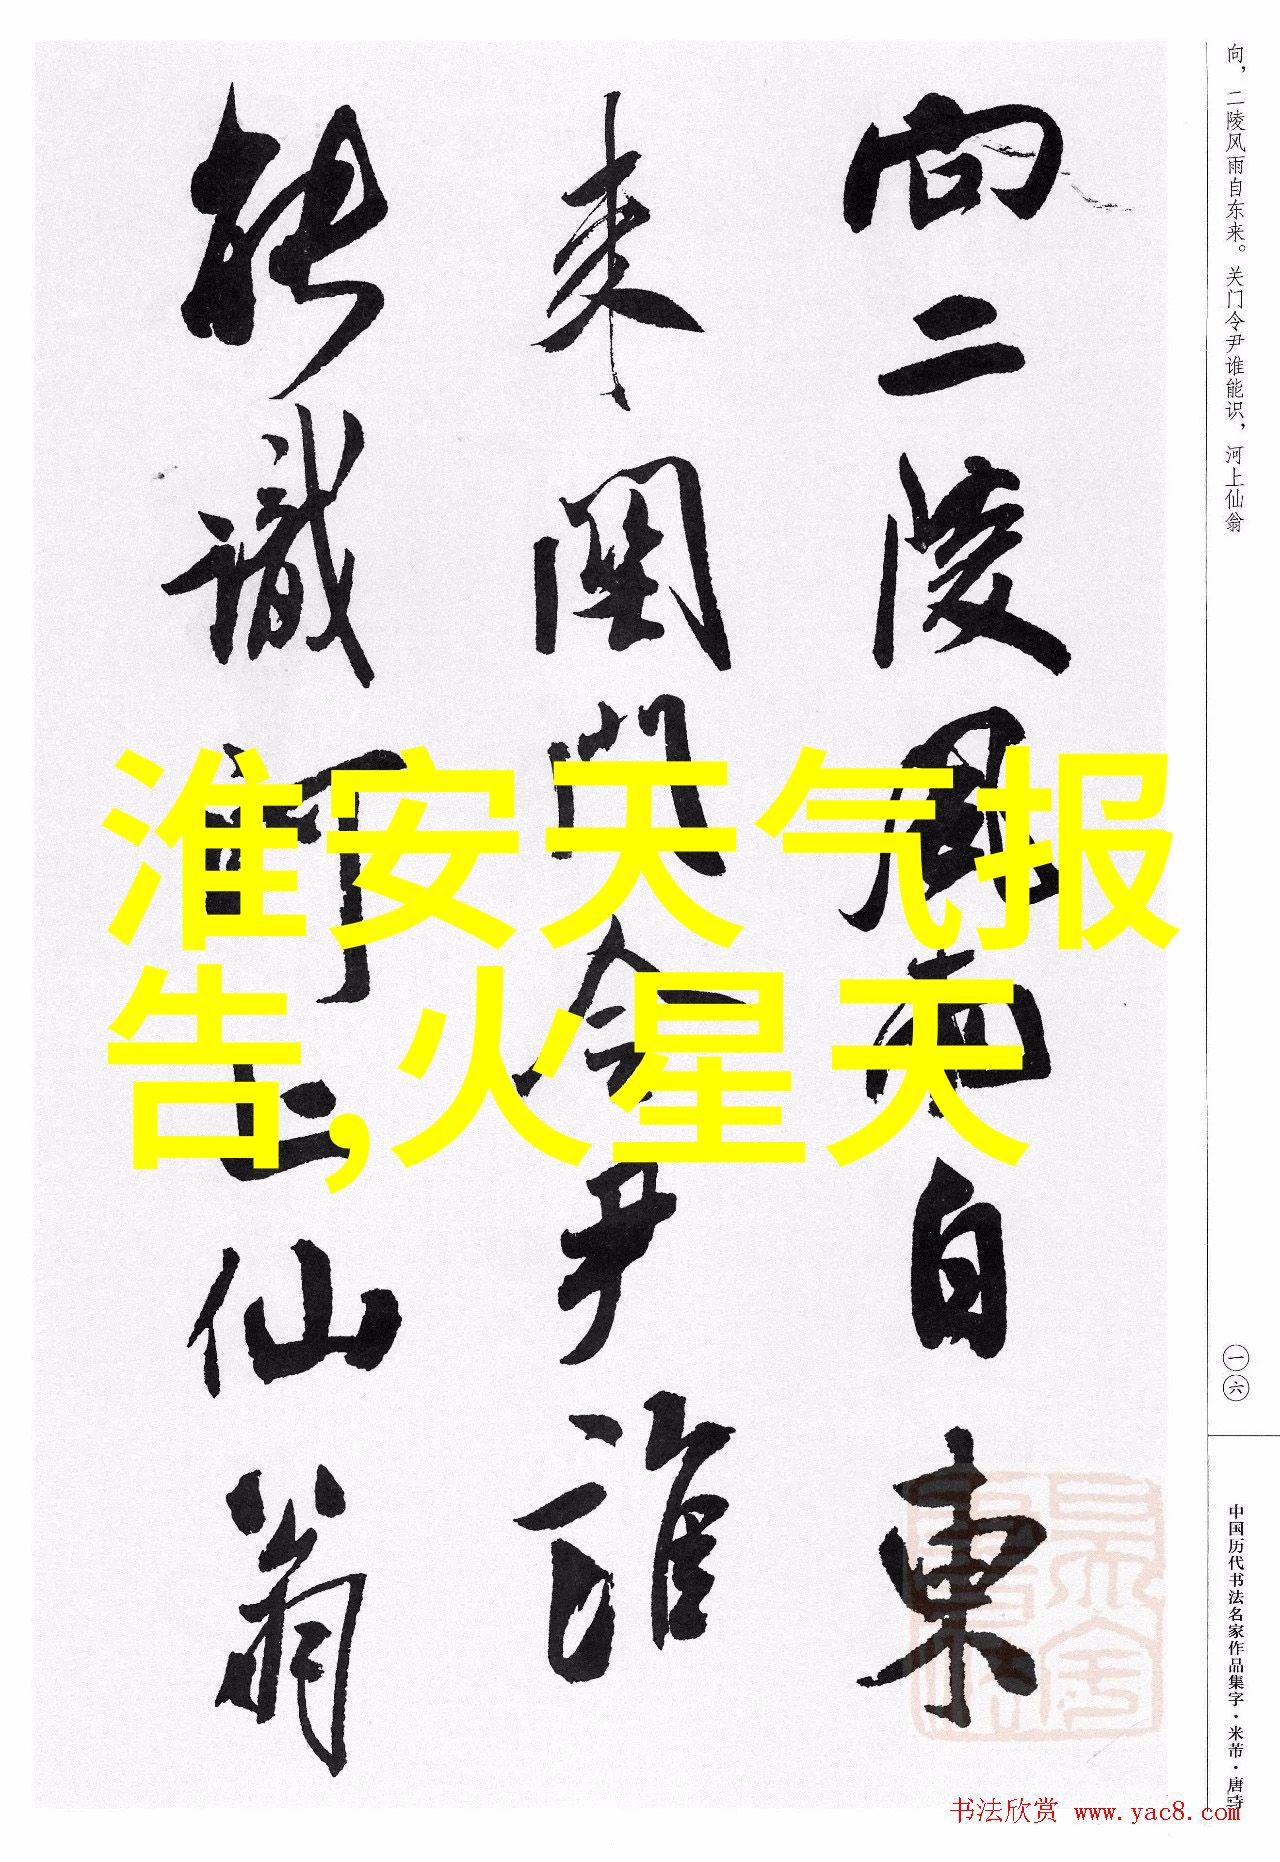 向二陵風雨自東
来關門令尹誰
能識河上仙翁
淮安天气报
告,火星天
向，二陵风雨自东来。关门令尹谁能识，河上仙翁
一六
中国历代书法名家作品集字·米芾·唐诗
书法欣赏 www.yac8.com